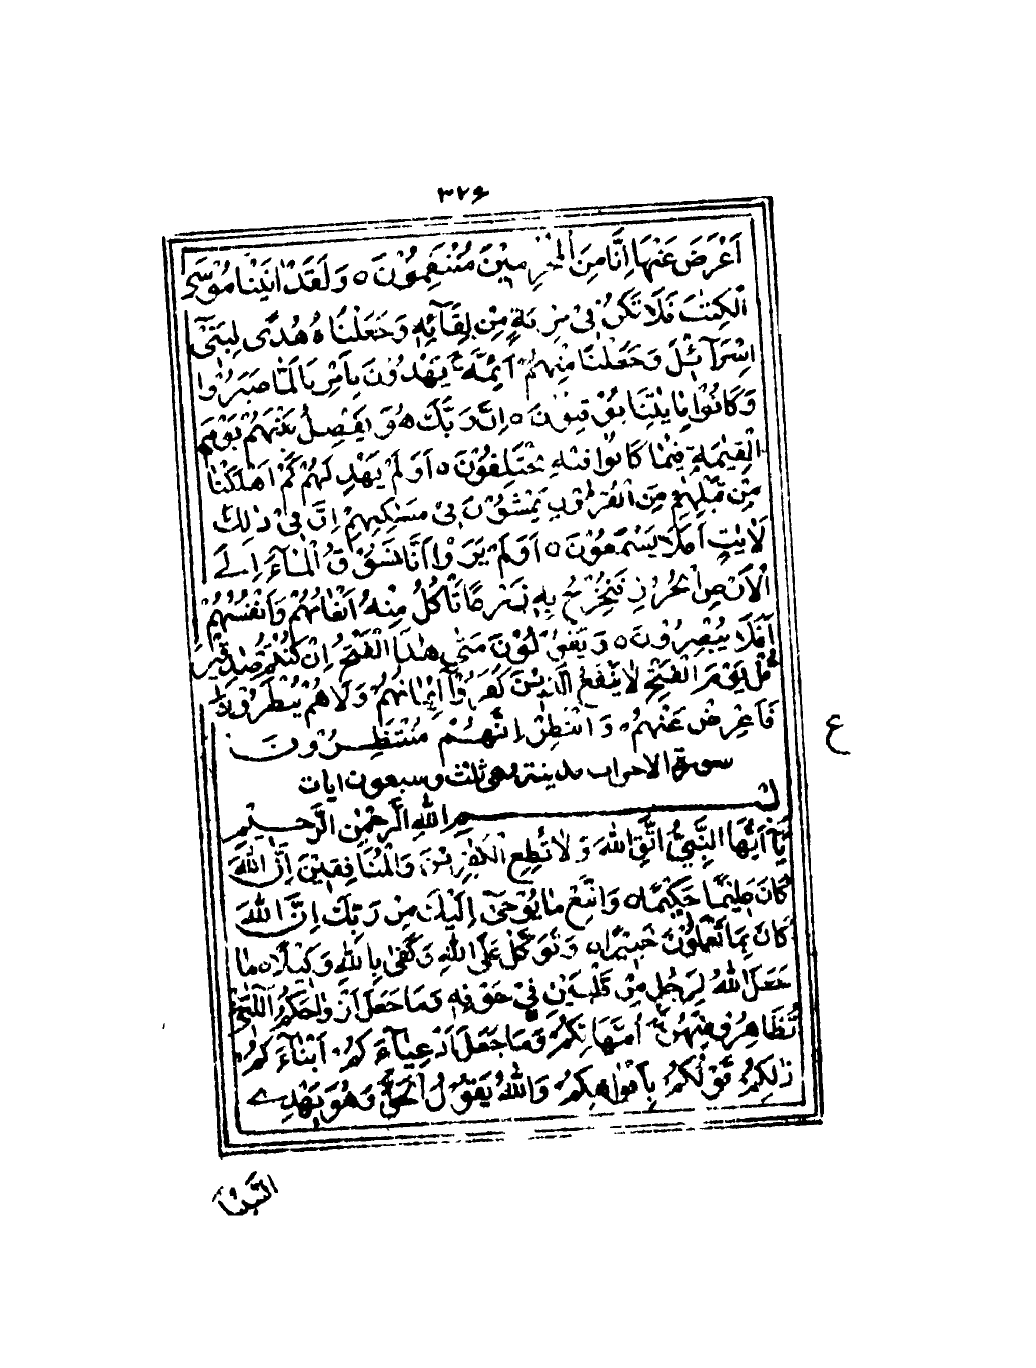 ۳۲۶
اَعْرَضَ عَنْهَا اِنَّا مِنَ الْمُجْرِمِيْنَ مُنْتَقِمُوْنَ ٥ وَلَقَدْ اٰتَيْنَا مُوْسَى
الْكِتٰبَ فَلَا تَكُنْ فِيْ مِرْيَةٍ مِّنْ لِّقَآئِهٖ وَجَعَلْنَاهُ هُدًى لِّبَنِيْ
اِسْرَآئِيْلَ وَجَعَلْنَا مِنْهُمْ اَئِمَّةً يَّهْدُوْنَ بِاَمْرِنَا لَمَّا صَبَرُوْا
وَكَانُوْا بِاٰيٰتِنَا يُوْقِنُوْنَ ٥ اِنَّ رَبَّكَ هُوَ يَفْصِلُ بَيْنَهُمْ يَوْمَ
الْقِيٰمَةِ فِيْمَا كَانُوْا فِيْهِ يَخْتَلِفُوْنَ ٥ اَوَلَمْ يَهْدِ لَهُمْ كَمْ اَهْلَكْنَا
مِنْ قَبْلِهِمْ مِّنَ الْقُرُوْنِ يَمْشُوْنَ فِيْ مَسٰكِنِهِمْ اِنَّ فِيْ ذٰلِكَ
لَاٰيٰتٍ اَفَلَا يَسْمَعُوْنَ ٥ اَوَلَمْ يَرَوْا اَنَّا نَسُوْقُ الْمَآءَ اِلَے
الْاَرْضِ الْجُرُزِ فَنُخْرِجُ بِهٖ زَرْعًا تَاْكُلُ مِنْهُ اَنْعَامُهُمْ وَاَنْفُسُهُمْ
اَفَلَا يُبْصِرُوْنَ ٥ وَيَقُوْلُوْنَ مَتٰى هٰذَا الْفَتْحُ اِنْ كُنْتُمْ صٰدِقِيْنَ
قُلْ يَوْمَ الْفَتْحِ لَا يَنْفَعُ الَّذِيْنَ كَفَرُوْٓا اِيْمَانُهُمْ وَلَا هُمْ يُنْظَرُوْنَ
فَاَعْرِضْ عَنْهُمْ وَانْتَظِرْ اِنَّهُمْ مُّنْتَظِرُوْنَ
ع
سورة الاحزاب مدينة وهى ثلث وسبعون ايات
بِسْمِ اللهِ الرَّحْمٰنِ الرَّحِيْمِ
يٰٓاَيُّهَا النَّبِيُّ اتَّقِ اللهَ وَلَا تُطِعِ الْكٰفِرِيْنَ وَالْمُنَافِقِيْنَ اِنَّ اللهَ
كَانَ عَلِيْمًا حَكِيْمًا ٥ وَاتَّبِعْ مَا يُوْحٰى اِلَيْكَ مِنْ رَّبِّكَ اِنَّ اللهَ
كَانَ بِمَا تَعْمَلُوْنَ خَبِيْرًا ٥ وَتَوَكَّلْ عَلَى اللهِ وَكَفٰى بِاللهِ وَكِيْلًا ٥ مَا
جَعَلَ اللهُ لِرَجُلٍ مِّنْ قَلْبَيْنِ فِيْ جَوْفِهٖ وَمَا جَعَلَ اَزْوَاجَكُمُ الّٰٓئِيْ
تُظَاهِرُوْنَ مِنْهُنَّ اُمَّهَاتِكُمْ وَمَا جَعَلَ اَدْعِيَآءَكُمْ اَبْنَآءَكُمْ
ذٰلِكُمْ قَوْلُكُمْ بِاَفْوَاهِكُمْ وَاللهُ يَقُوْلُ الْحَقَّ وَهُوَ يَهْدِے